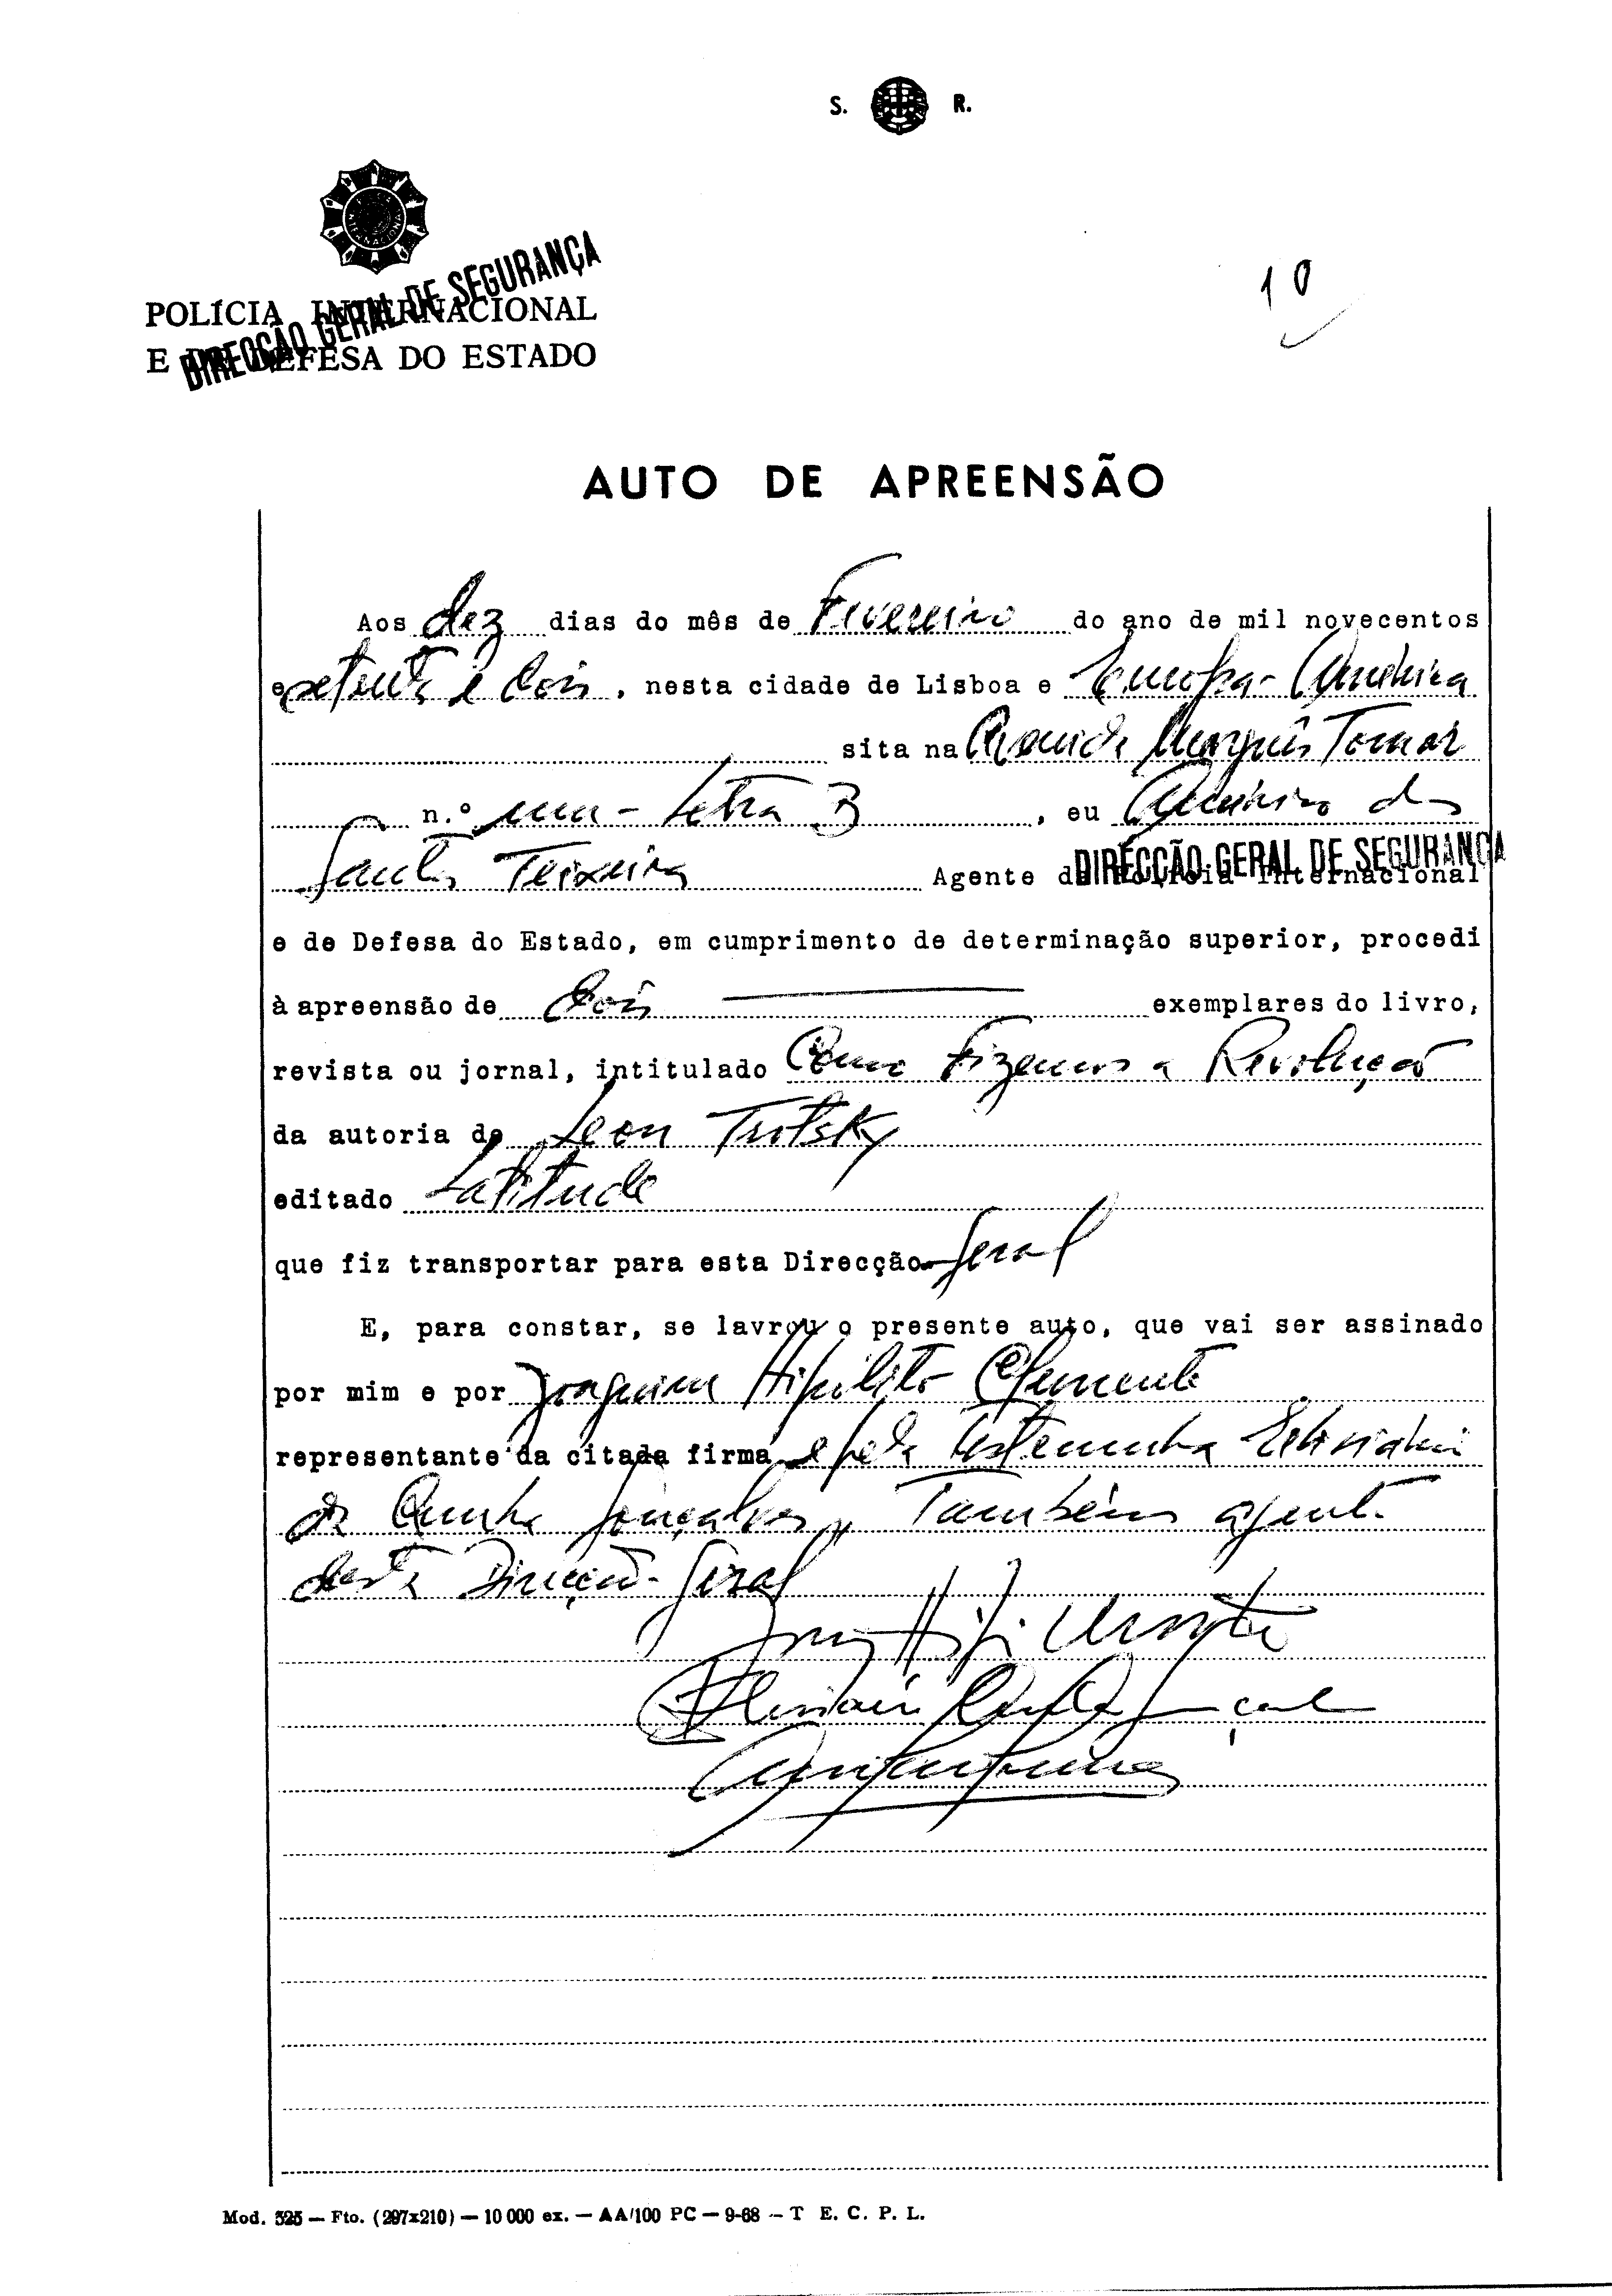 S. R.
10
POLÍCIA INTERNACIONAL
E DE DEFESA DO ESTADO
DIRECÇÃO GERAL DE SEGURANÇA
AUTO DE APREENSÃO
Aos dez dias do mês de Fevereiro do ano de mil novecentos
e setenta e dois, nesta cidade de Lisboa e Europa-América
sita na Avenida Marquês Tomar
n.º um - Letra B, eu
Santos Teixeira Agente da Polícia Internacional
DIRECÇÃO GERAL DE SEGURANÇA
e de Defesa do Estado, em cumprimento de determinação superior, procedi
à apreensão de dois exemplares do livro,
revista ou jornal, intitulado Como Fizemos a Revolução
da autoria de Leon Trotsky
editado Latitude
que fiz transportar para esta Direcção-Geral
E, para constar, se lavrou o presente auto, que vai ser assinado
por mim e por Joaquim Hipólito Clemente
representante da citada firma e pela testemunha
da Cunha Gonçalves, também agente
desta Direcção-Geral
Mod. 325 — Fto. (297x210) — 10 000 ex. — AA/100 PC — 9-68 — T E. C. P. L.